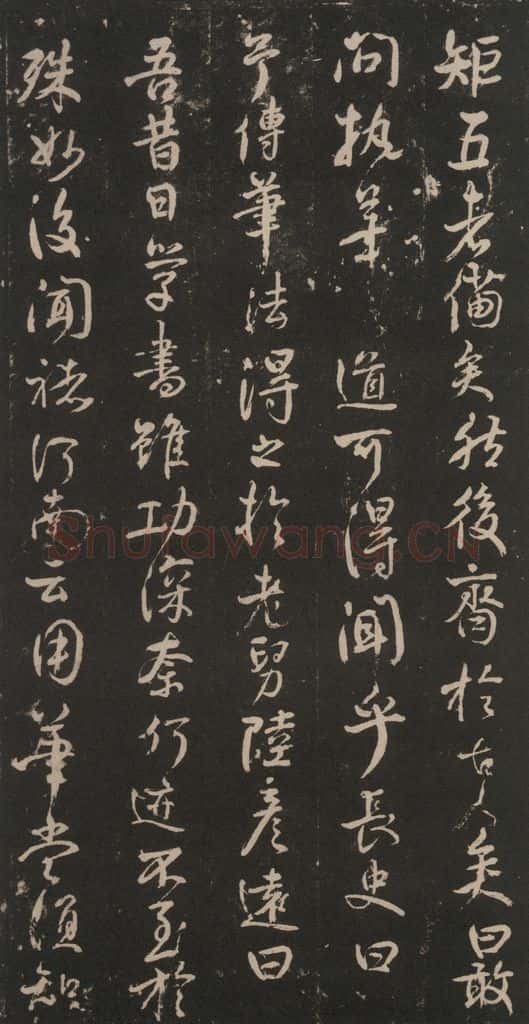 矩五者備矣然後齊於古人矣曰敢
問執筆道可得聞乎長史曰
予傳筆法得之於老舅陸彥遠曰
吾昔日学書雖功深奈何迹不至於
殊妙後聞褚河南云用筆當須知
Shufawang.CN